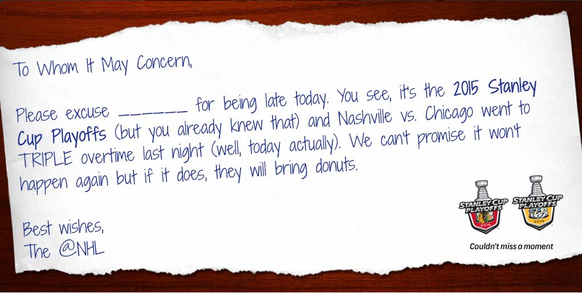 To Whom It May Concern,
Please excuse ______ for being late today. You see, it's the 2015 Stanley
Cup Playoffs (but you already knew that) and Nashville vs. Chicago went to
TRIPLE overtime last night (well, today actually). We can't promise it won't
happen again but if it does, they will bring donuts.
Best wishes,
The @NHL
STANLEY CUP
PLAYOFFS
STANLEY CUP
PLAYOFFS
2015
Couldn't miss a moment